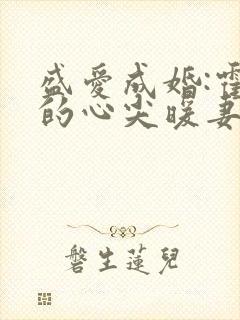 盛爱成婚:霍
的心尖暖妻
磐生莲儿